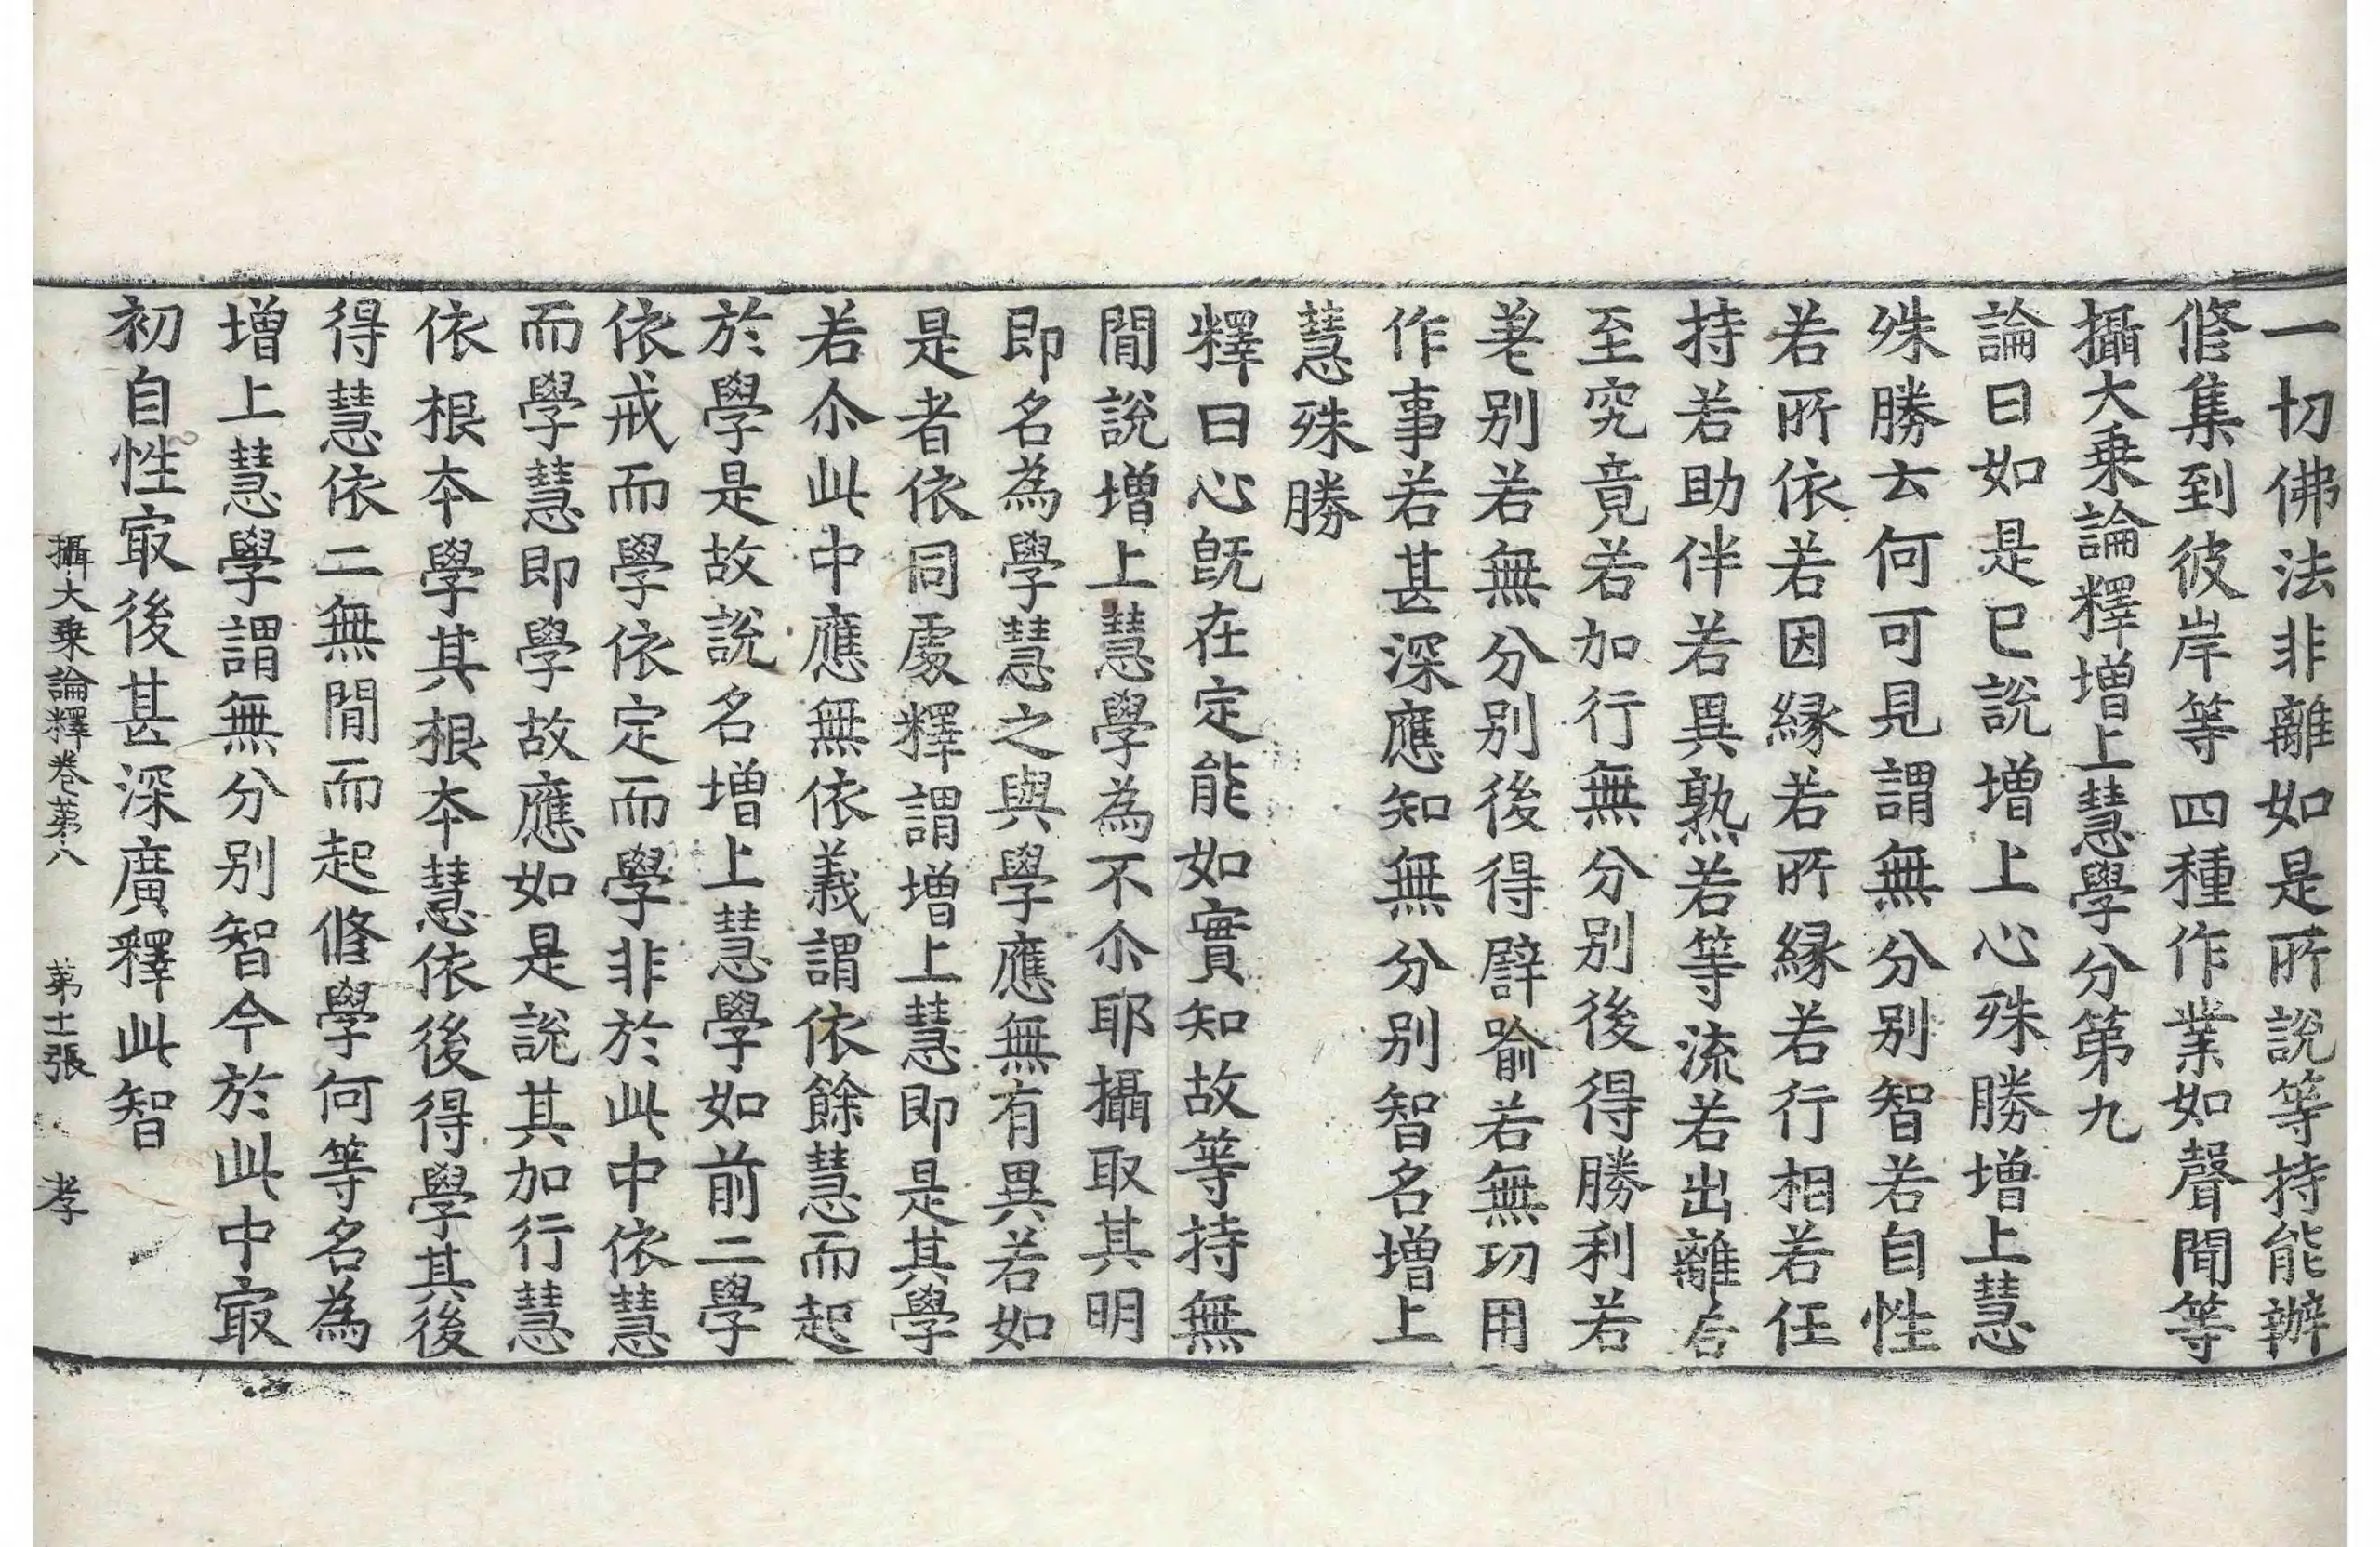 一切佛法非離如是所說等持能辦
修集到彼岸等四種作業如聲聞等
攝大乗論釋增上慧學分第九
論曰如是已說增上心殊勝增上慧
殊勝云何可見謂無分別智若自性
若所依若因緣若所緣若行相若任
持若助伴若異熟若等流若出離若
至究竟若加行無分別後得勝利若
差別若無分別後得譬喻若無功用
作事若甚深應知無分別智名增上
慧殊勝
釋曰心旣在定能如實知故等持無
閒說增上慧學為不尒耶攝取其明
即名為學慧之與學應無有異若如
是者依同處釋謂增上慧即是其學
若尒此中應無依義謂依餘慧而起
於學是故說名增上慧學如前二學
依戒而學依定而學非於此中依慧
而學慧即學故應如是說其加行慧
依根本學其根本慧依後得學其後
得慧依二無閒而起修學何等名為
增上慧學謂無分別智今於此中㝡
初自性㝡後甚深廣釋此智
攝大乗論釋卷第八 第十二張 孝